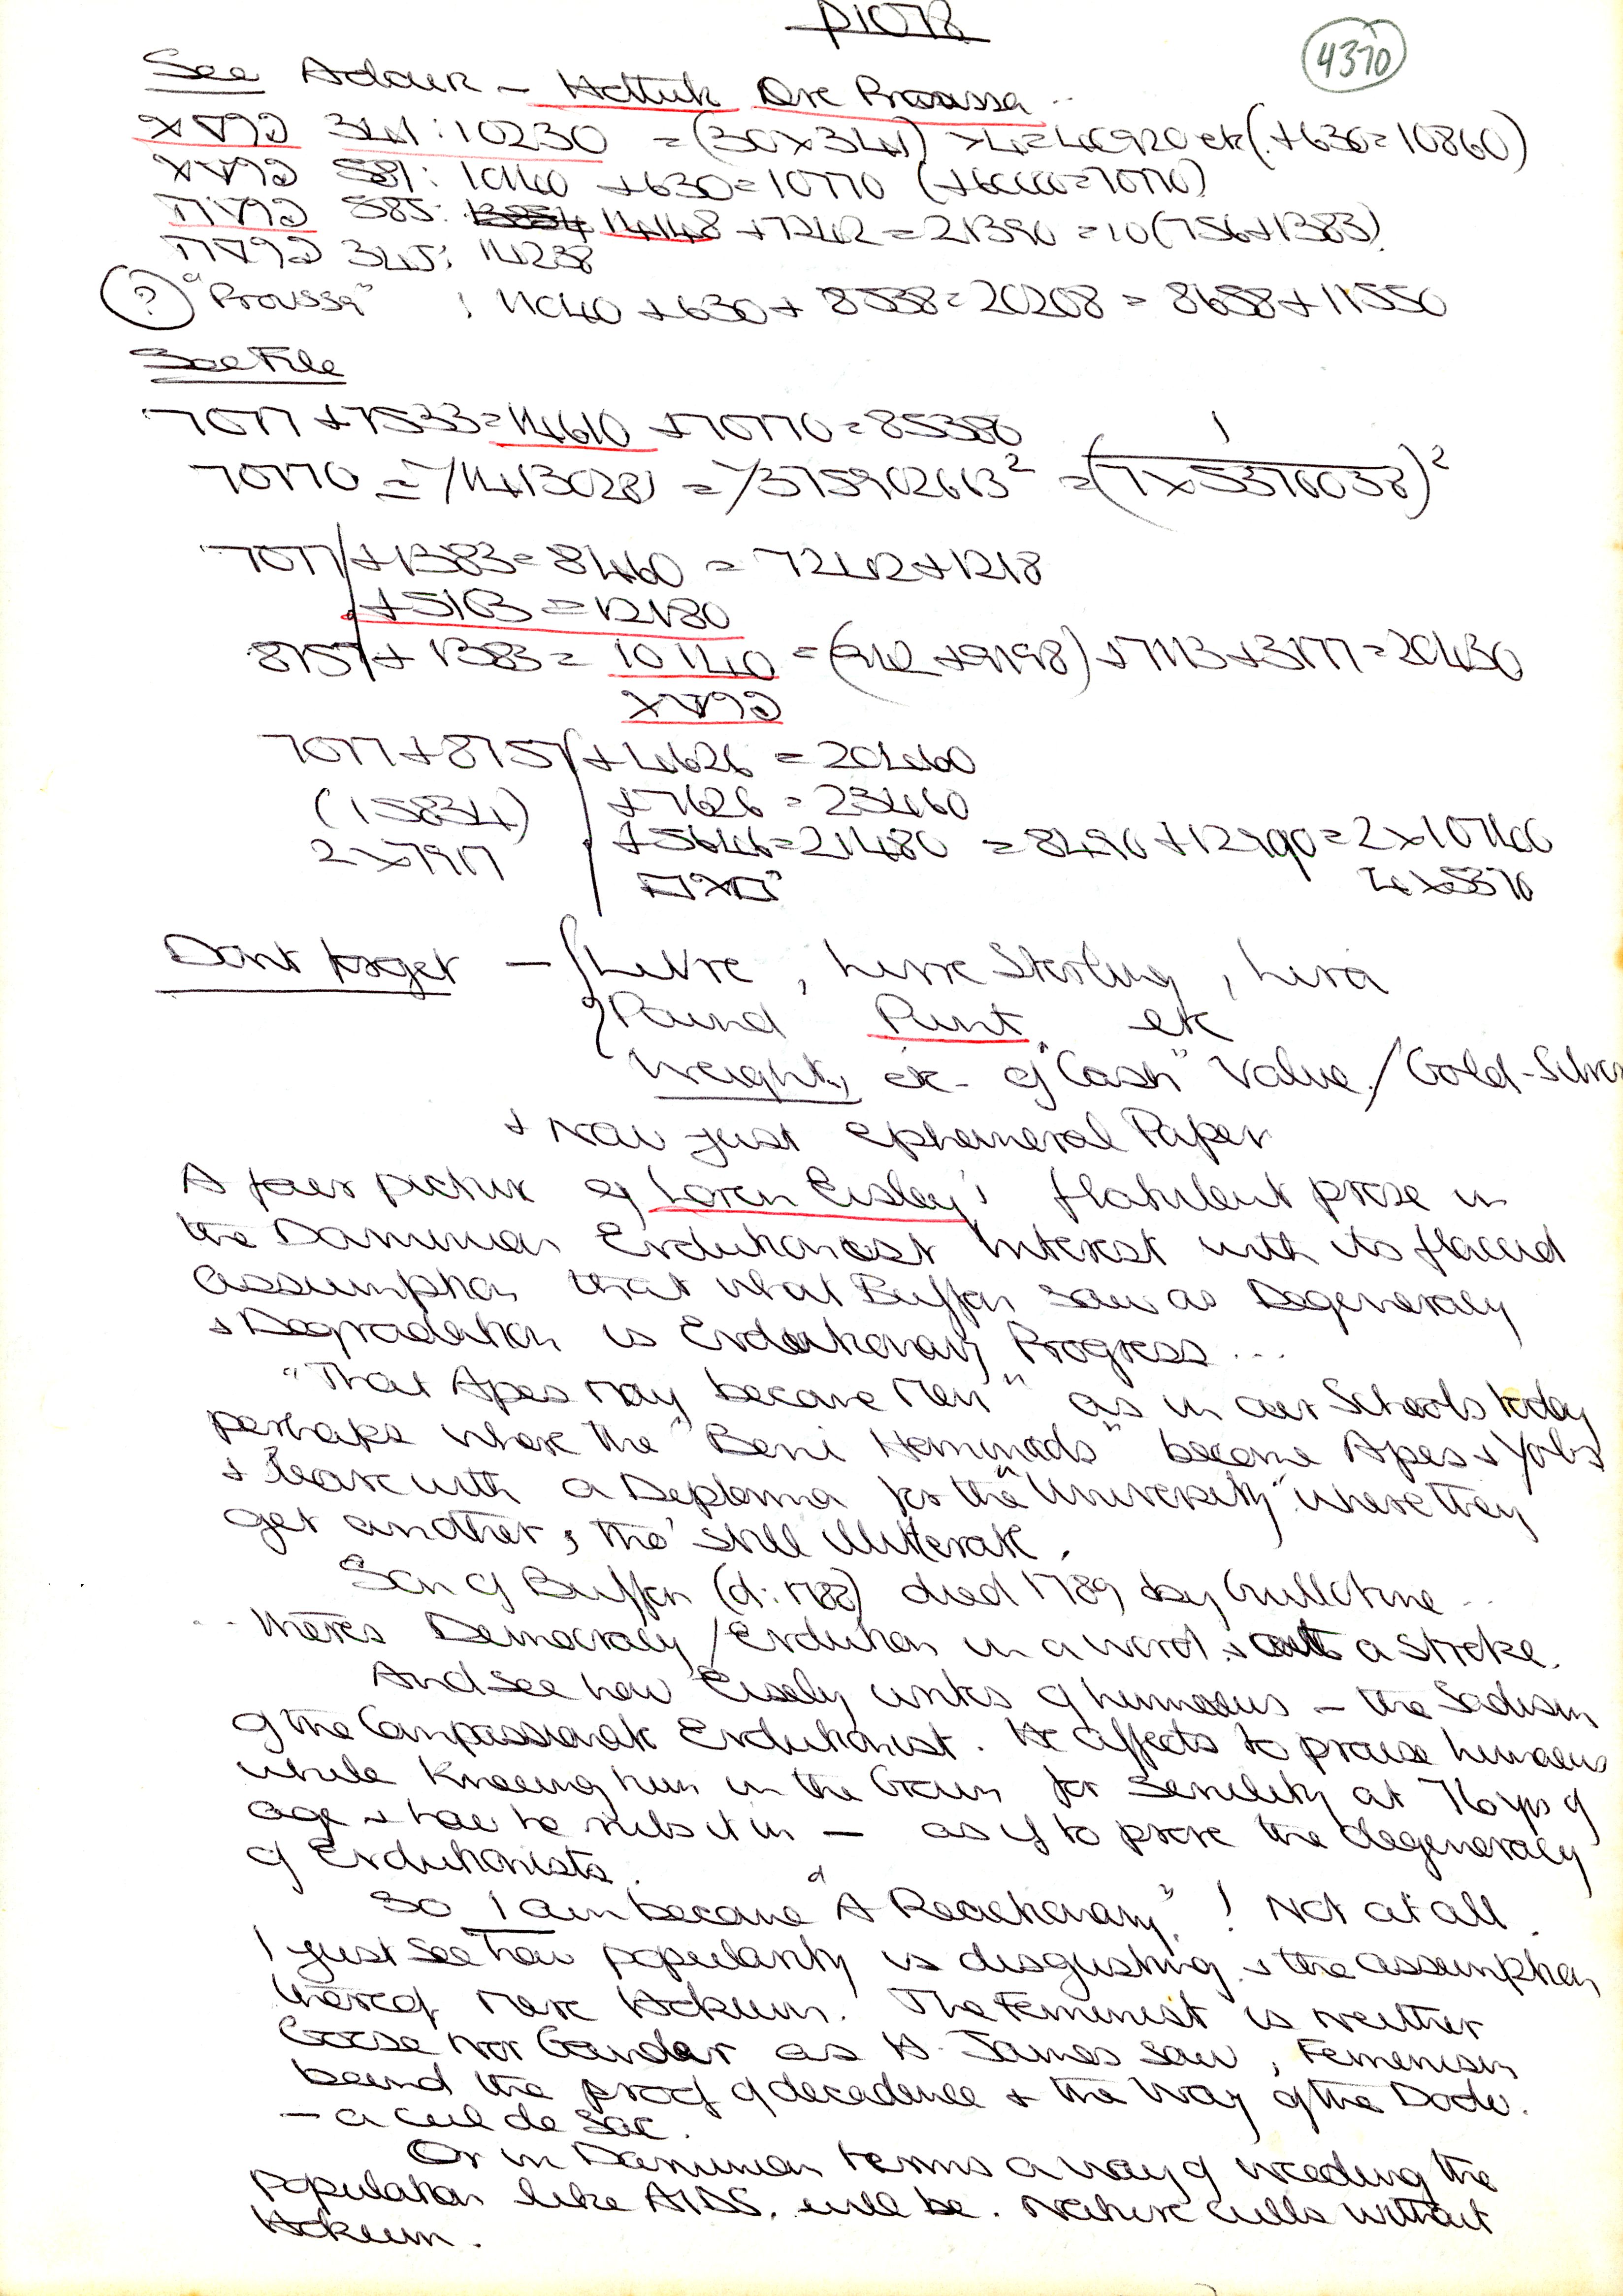 4370
See Adour - Hattuk Dre Proussa ..
341 : 10230 = (30 x 341) x 4 = 40920 etc (. + 630 = 10860)
581 : 10140 + 630 = 10770 (+ 60000 = 70770)
585 : 14148 + 7242 = 21390 = 10 (756 + 1383)
345 : 14238
? "Proussa" : 11040 + 630 + 8538 = 20208 = 8658 + 11550
See File
7077 + 7533 = 14610 + 70770 = 85380
70770 = 1/1413028) = 1/375902663² = (1/7 x 5370038)²
7077 + 1383 = 8460 = 7242 + 1218
+ 5103 = 12180
8757 + 1383 = 10140 = (942 + 9198) + 7113 + 3177 = 20430
7077 + 8757 + 4626 = 20460
(15834) + 7626 = 23460
2 x 7917 + 5646 = 21480 = 8490 + 12990 = 2 x 10740
4 x 5370
Dont forget - { Livre , Livre Sterling , Lira
Pound Punt etc
Weights, etc - of "Cash" Value / Gold - Silver
+ Now just ephemeral Paper
A fair picture of Loren Eisley's flatulent prose in
the Darwinian Evolutionist Interest with its flaccid
assumption that what Buffon saw as Degeneracy
+ Degradation is Evolutionary Progress ...
"That Apes may become Men" as in our Schools today
perhaps where the "Beni Hominids" become Apes + Yobs
+ leave with a Diploma for the "University" where they
get another, tho' still illiterate.
Son of Buffon (d: 1788) died 1789 by Guillotine ..
.. there's Democracy / Evolution in a word + at a stroke.
And see how Eisely writes of Linnaeus - the Sadism
of the Compassionate Evolutionist. He affects to praise Linnaeus
while kneeing him in the Groin for senility at 76 yrs of
age + how he rubs it in - as if to prove the degeneracy
of Evolutionists.
So I am become "A Reactionary"! Not at all.
I just see how popularity is disgusting + the assumption
thereof mere Hokum. The Feminist is neither
Goose nor Gander as H. James saw, Feminism
being the proof of decadence + the Way of the Dodo.
- a cul de sac.
Or in Darwinian terms a way of weeding the
Population like AIDS. will be. Nature culls without
Hokum.